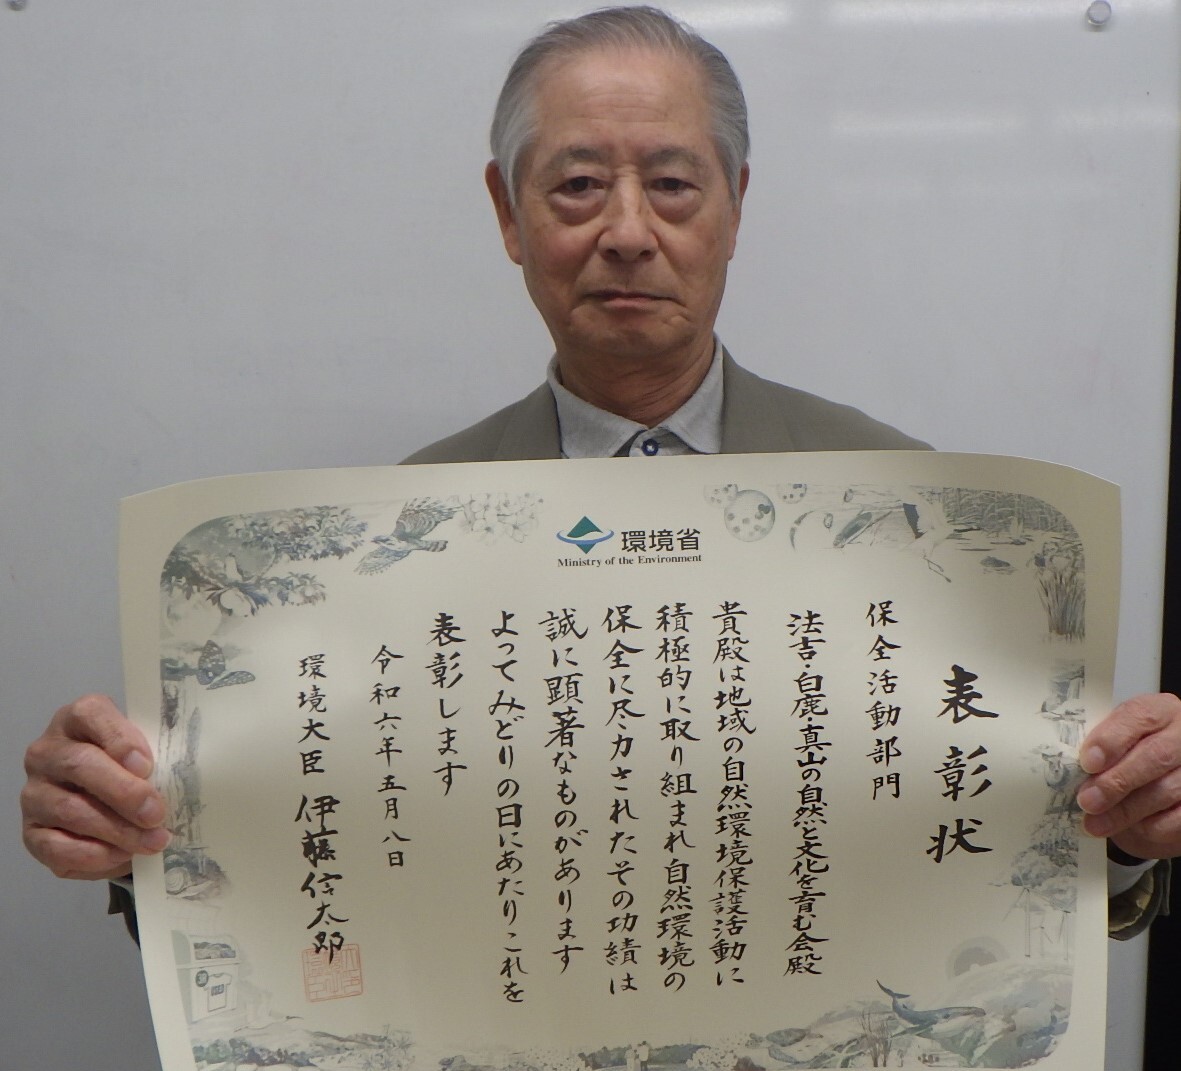 環境省
Ministry of the Environment
表彰状
保全活動部門
法吉・白鹿・真山の自然と文化を育む会殿
貴殿は地域の自然環境保護活動に
積極的に取り組まれ自然環境の
保全に尽力されたその功績は
誠に顕著なものがあります
よってみどりの日にあたりこれを
表彰します
令和六年五月八日
環境大臣 伊藤信太郎